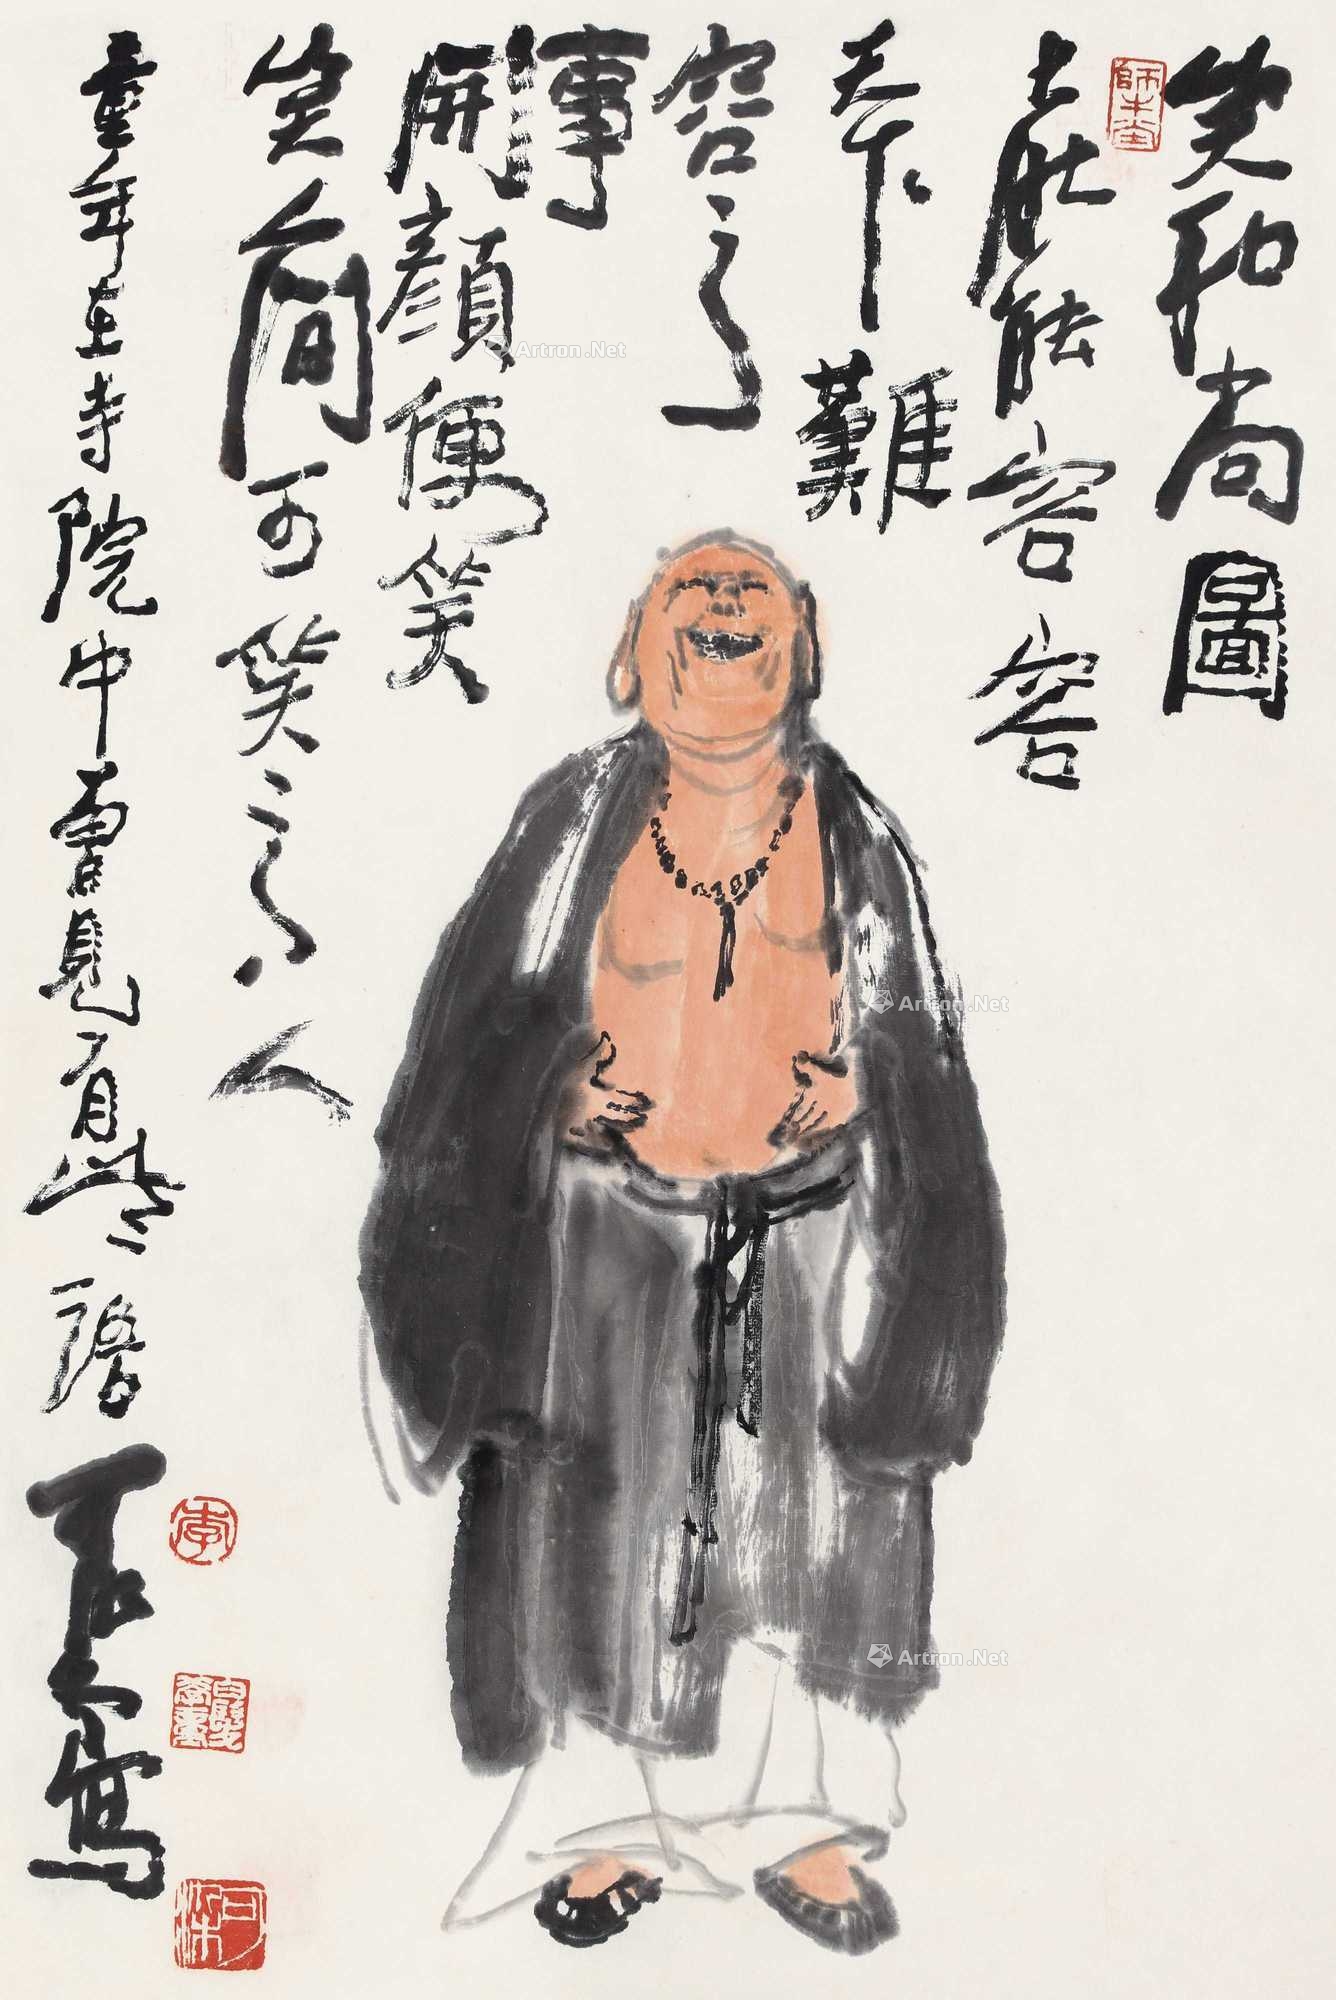 笑和尚圖
大肚能容容
天下難
容之
事
開顔便笑
笑人间可笑之
人
童年在寺院中曾見有此语
可染寫
師牛堂
李
白髮學童
可染
Artron.Net
Artron.Net
Artron.Net